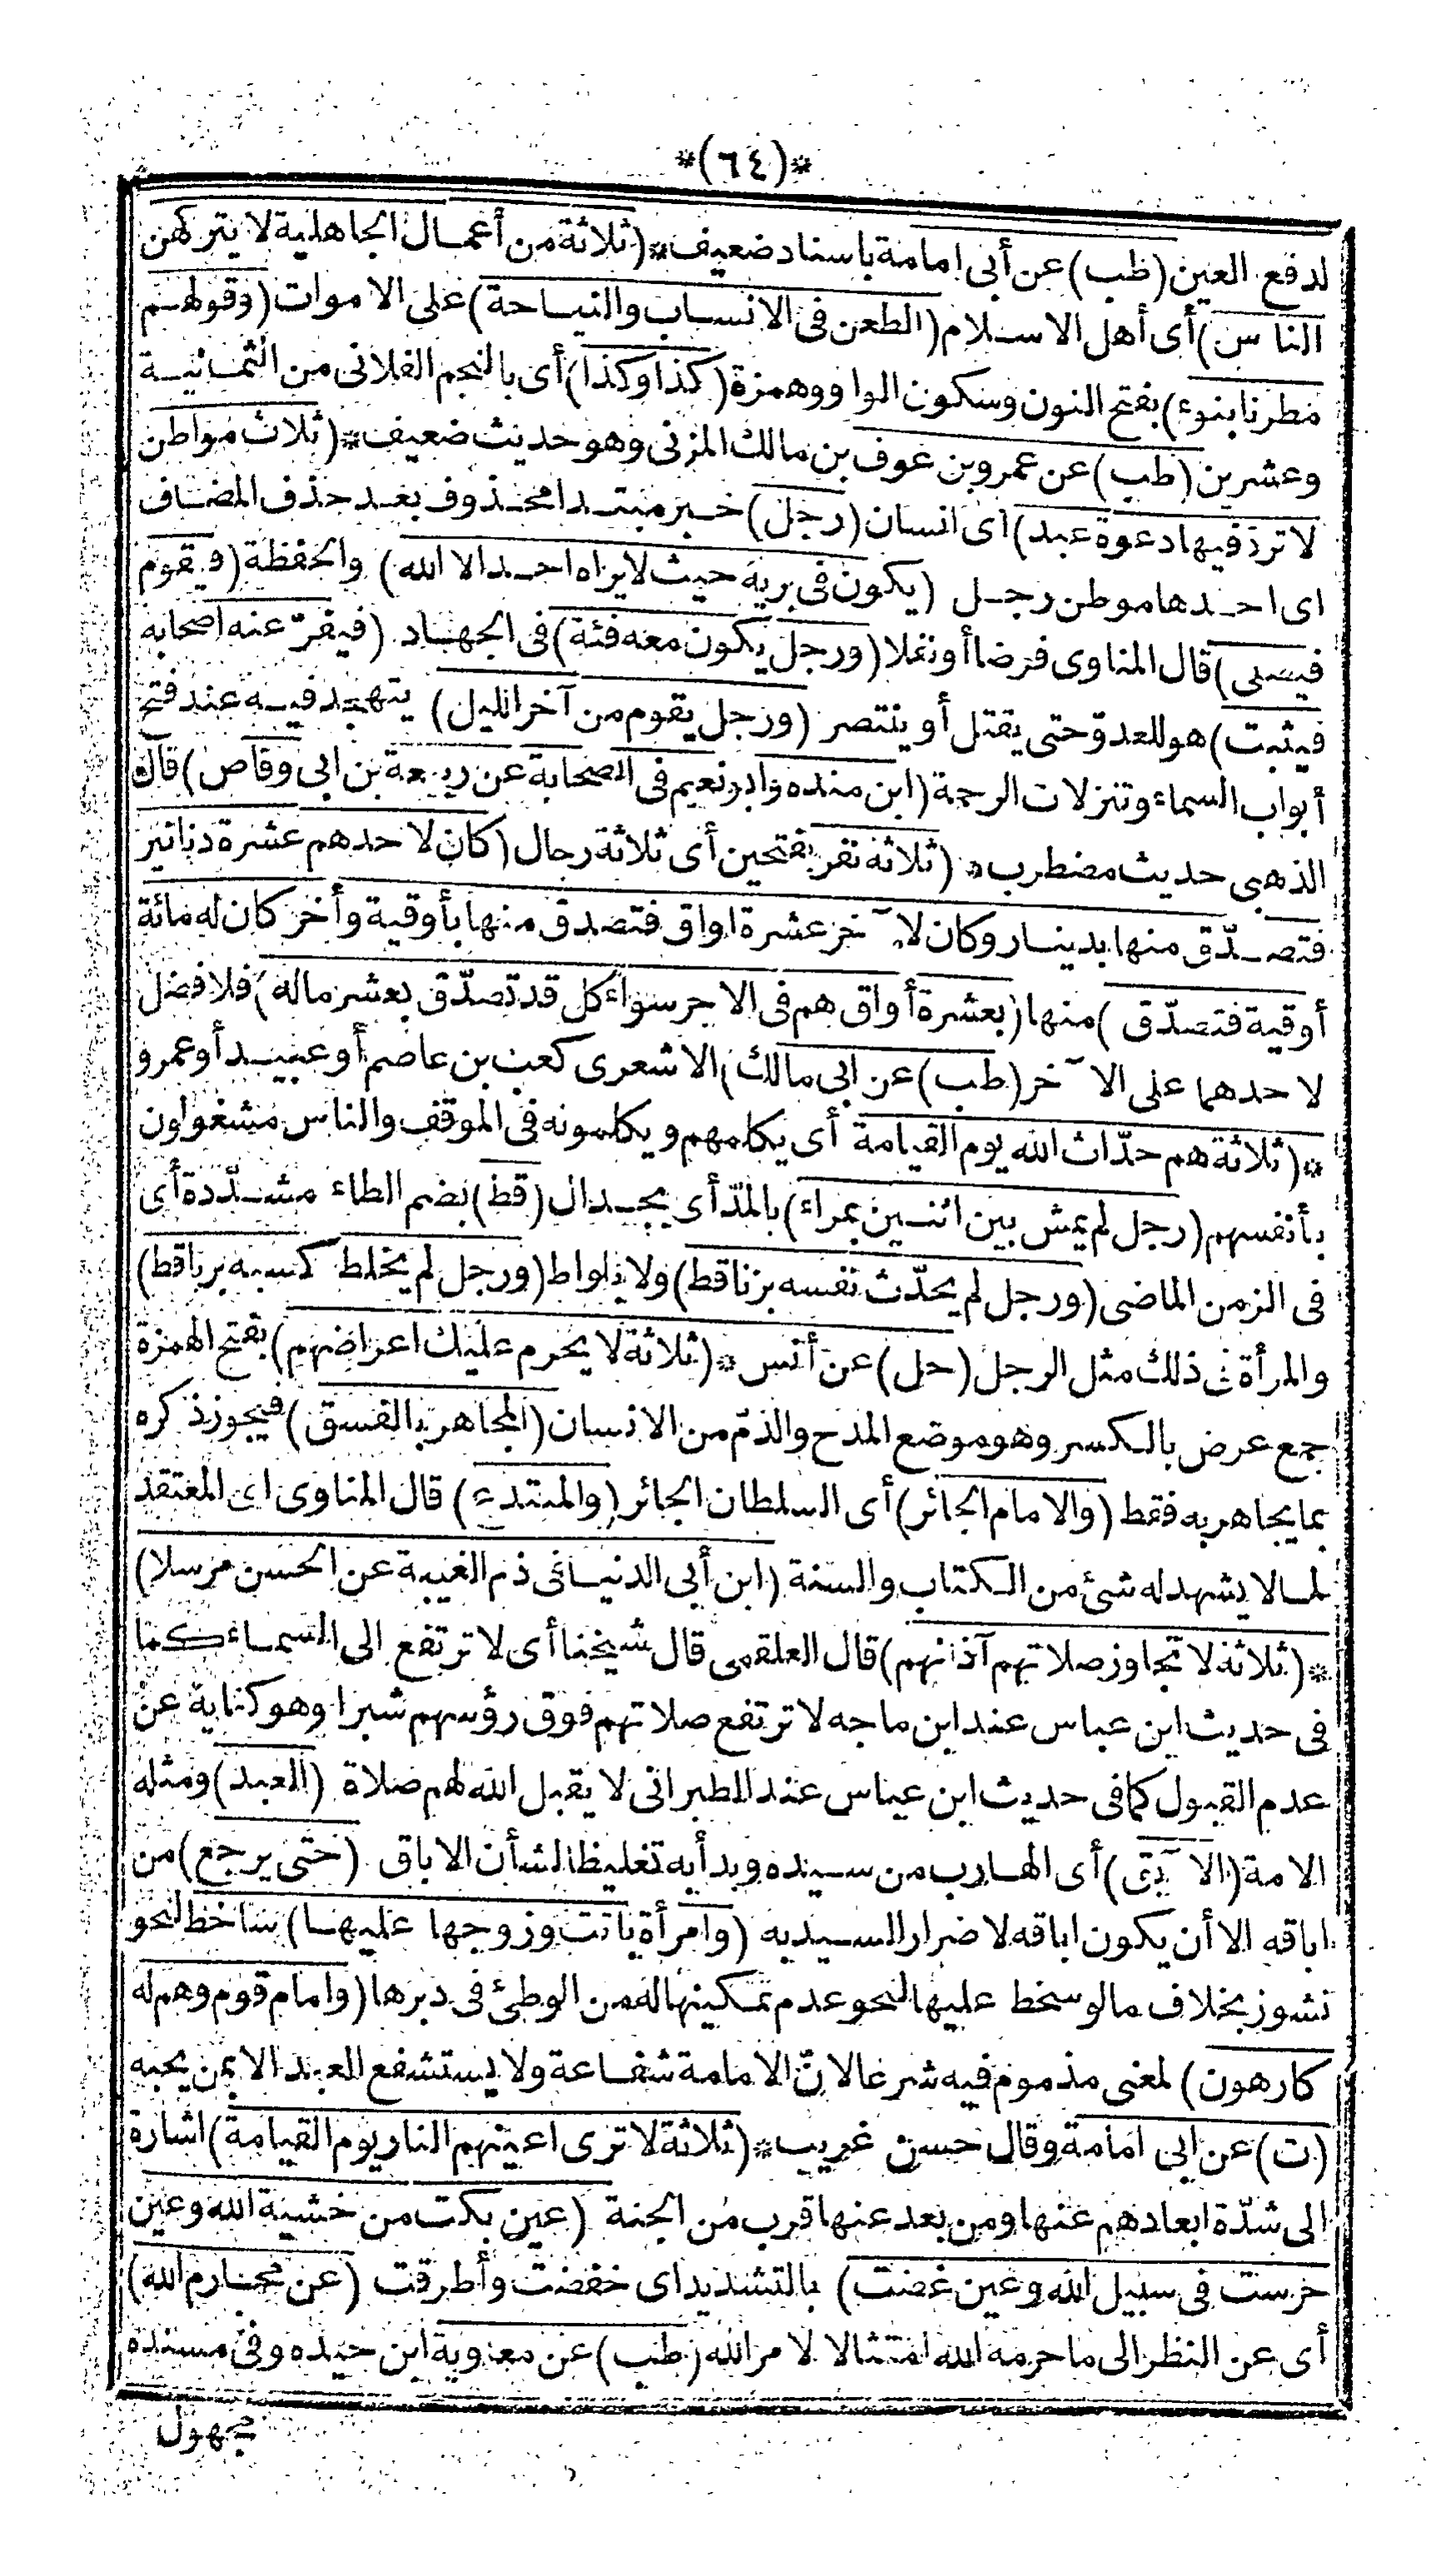 *(٦٤)*
لدفع العين (طب) عن أبى امامة باسناد ضعيف *(ثلاثة من أعمال الجاهلية لا يتركهن
الناس) أى أهل الاسلام (الطعن فى الانساب والنياحة) على الاموات (وقولهم
مطرنا بنوء) بفتح النون وسكون الواو وهمزة (كذا وكذا) أى بالنجم الفلانى من الثمانية
وعشرين (طب) عن عمرو بن عوف بن مالك المزنى وهو حديث ضعيف *(ثلاث مواطن
لا ترد فيها دعوة عبد) اى انسان (رجل) خبر مبتدا محذوف بعد حذف المضاف
اى احدها موطن رجل (يكون فى برية حيث لا يراه احد الا الله) والحفظة (فيقوم
فيصلى) قال المناوى فرضا أو نفلا (ورجل يكون معه فئة) فى الجهاد (فيفرّ عنه اصحابه
فيثبت) هو للعدوّ حتى يقتل أو ينتصر (ورجل يقوم من آخر الليل) يتهجد فيه عند فتح
أبواب السماء وتنزلات الرحمة (ابن منده وابو نعيم فى الصحابة عن ربيعة بن ابى وقاص) قال
الذهبى حديث مضطرب * (ثلاثة نفر بفتحين أى ثلاثة رجال (كان لاحدهم عشرة دنانير
فتصدّق منها بدينار وكان لآخر عشرة اواق فتصدق منها بأوقية وأخر كان له مائة
أوقية فتصدّق) منها (بعشرة أواق هم فى الاجر سواء كل قد تصدّق بعشر ماله) فلا فضل
لاحدهما على الآخر (طب) عن ابى مالك) الاشعرى كعب بن عاصم أو عبيد أو عمرو
*(ثلاثة هم حدّاث الله يوم القيامة أى يكلمهم ويكلمونه فى الموقف والناس مشغولون
بأنفسهم (رجل لم يمش بين اثنين بمراء) بالمدّ أى بجدال (قط) بضم الطاء مشدّدة أى
فى الزمن الماضى (ورجل لم يحدّث نفسه بزنا قط) ولا بلواط (ورجل لم يخلط كسبه بربا قط)
والمرأة فى ذلك مثل الرجل (حل) عن أنس *(ثلاثة لا يحرم عليك اعراضهم) بفتح الهمزة
جمع عرض بالكسر وهو موضع المدح والذمّ من الانسان (المجاهر بالفسق) فيجوز ذكره
بما يجاهر به فقط (والامام الجائر) أى السلطان الجائر (والمبتدع) قال المناوى اى المعتقد
لما لا يشهد له شئ من الكتاب والسنة (ابن أبى الدنيا فى ذم الغيبة عن الحسن مرسلا)
*(ثلاثة لا تجاوز صلاتهم آذانهم) قال العلقمى قال شيخنا أى لا ترتفع الى السماء كما
فى حديث ابن عباس عند ابن ماجه لا ترتفع صلاتهم فوق رؤسهم شبرا وهو كناية عن
عدم القبول كما فى حديث ابن عباس عند الطبرانى لا يقبل الله لهم صلاة (العبد) ومثله
الامة (الآبق) أى الهارب من سيده وبدأ به تغليظا لشأن الاباق (حتى يرجع) من
اباقه الا أن يكون اباقه لاضرار السيد به (وامرأة باتت وزوجها عليها) ساخط لنحو
نشوز بخلاف ما لو سخط عليها لنحو عدم تمكينها له من الوطئ فى دبرها (وامام قوم وهم له
كارهون) لمعنى مذموم فيه شرعا لانّ الامامة شفاعة ولا يستشفع العبد الا بمن يحبه
(ت) عن ابى امامة وقال حسن غريب *(ثلاثة لا ترى اعينهم النار يوم القيامة) اشارة
الى شدّة ابعادهم عنها ومن بعد عنها قرب من الجنة (عين بكت من خشية الله وعين
حرست فى سبيل الله وعين غضت) بالتشديد اى خفضت وأطرقت (عن محارم الله)
أى عن النظر الى ما حرمه الله امتثالا لامر الله (طب) عن معوية ابن حيده وفى مسنده
مجهول